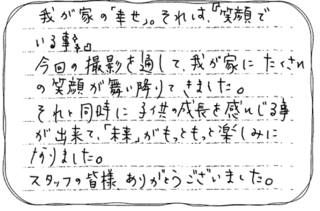 我が家の「幸せ」。それは、『笑顔で
いる事』。
今回の撮影を通して、我が家にたくさん
の笑顔が舞い降りてきました。
それと同時に子供の成長を感じる事
が出来て、「未来」がもっともっと楽しみに
なりました。
スタッフの皆様ありがとうございました。